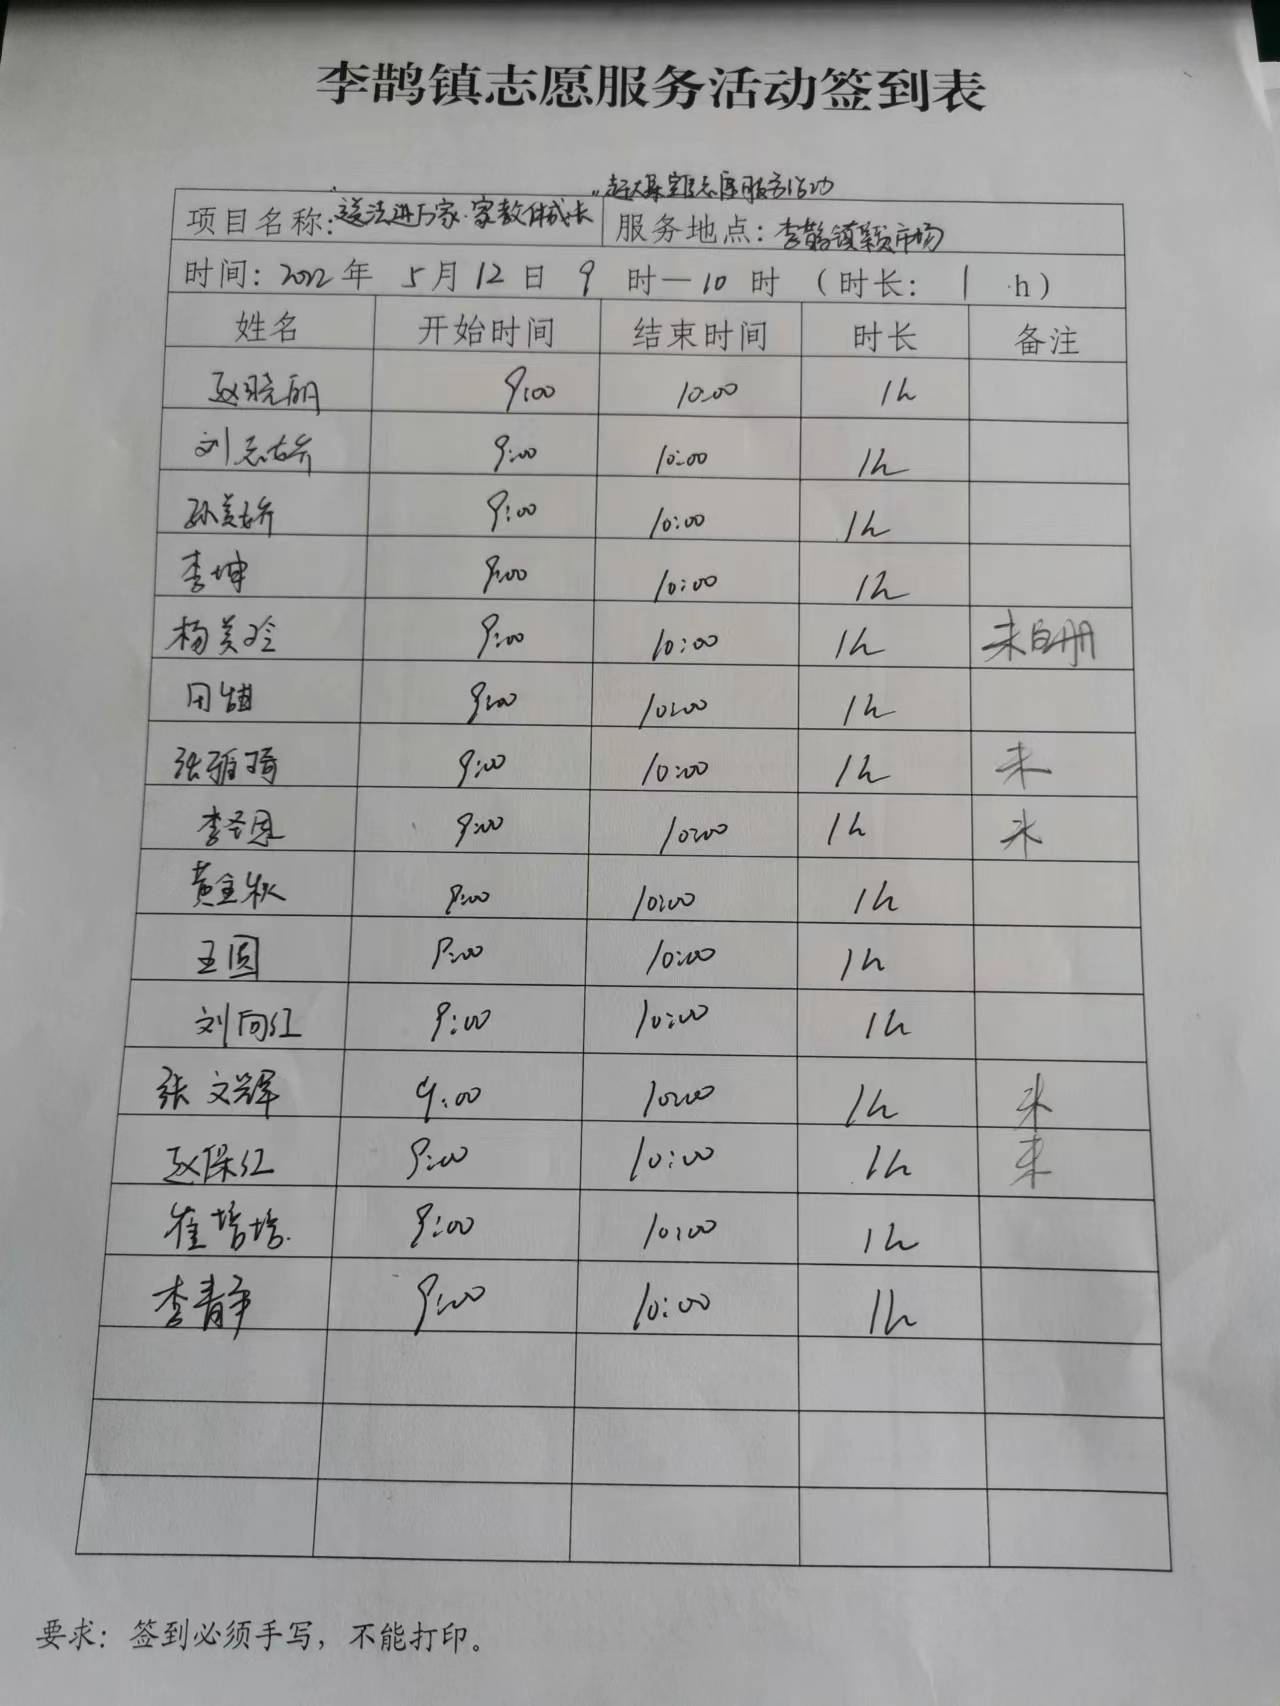 李鹊镇志愿服务活动签到表
志愿服务活动
项目名称：送法进万家·家教伴成长 服务地点：李鹊镇 市场
时间：2022年 5月12日 9时—10时（时长：1h）
姓名 开始时间 结束时间 时长 备注
赵晓丽 9:00 10:00 1h
刘志娇 9:00 10:00 1h
孙美娇 9:00 10:00 1h
李坤 9:00 10:00 1h
杨美玲 9:00 10:00 1h 未 册
田 9:00 10:00 1h
张雅琦 9:00 10:00 1h 未
李圣恩 9:00 10:00 1h 未
黄金秋 9:00 10:00 1h
王圆 9:00 10:00 1h
刘向红 9:00 10:00 1h
张文辉 9:00 10:00 1h 未
赵保红 9:00 10:00 1h 未
崔培培 9:00 10:00 1h
李静 9:00 10:00 1h
要求：签到必须手写，不能打印。